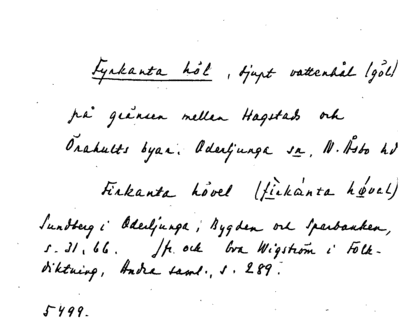 Fyrkanta höl, djupt vattenhål (göl)
på gränsen mellan Hagstads och
Örahults byar. Oderljunga sn, N. Åsbo hd
Firkanta hövel (firkànta hǿvəl)
Sundberg i Oderljunga, Bygden och Sparbanken,
s. 31, 66. Jfr. ock Eva Wigström i Folk-
diktning, Andra saml., s. 289.
5499.